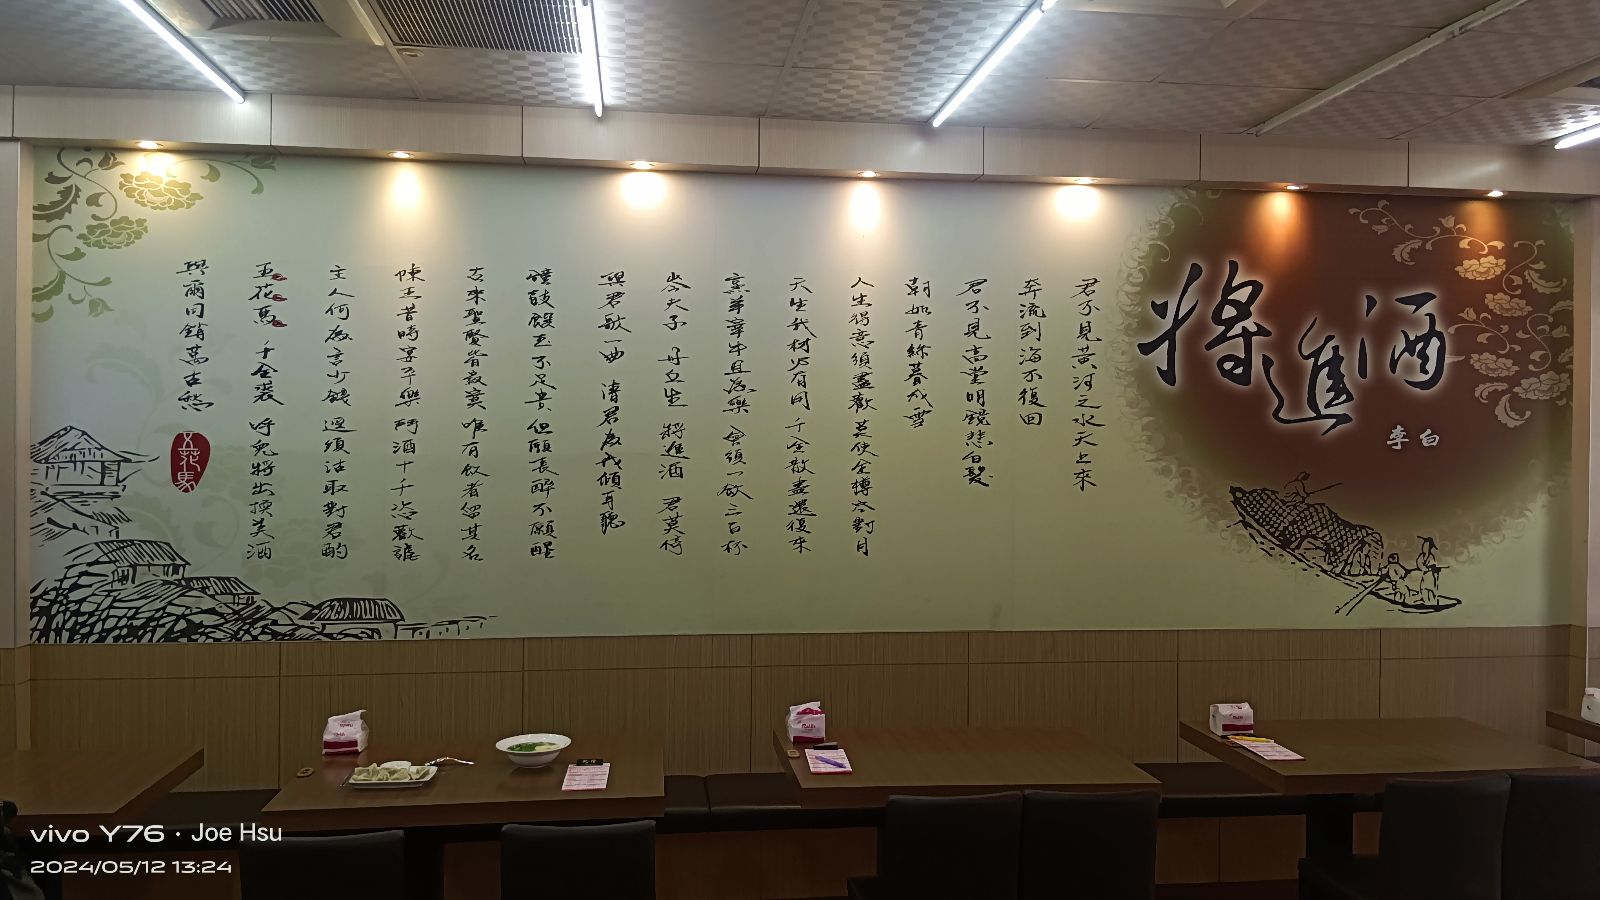 將進酒
李白
君不見黃河之水天上來
奔流到海不復回
君不見高堂明鏡悲白髮
朝如青絲暮成雪
人生得意須盡歡 莫使金樽空對月
天生我材必有用 千金散盡還復來
烹羊宰牛且為樂 會須一飲三百杯
岑夫子 丹丘生 將進酒 君莫停
與君歌一曲 請君為我傾耳聽
鐘鼓饌玉不足貴 但願長醉不願醒
古來聖賢皆寂寞 唯有飲者留其名
陳王昔時宴平樂 斗酒十千恣歡謔
主人何為言少錢 逕須沽取對君酌
五花馬 千金裘 呼兒將出換美酒
與爾同銷萬古愁
五花馬
vivo Y76 · Joe Hsu
2024/05/12 13:24